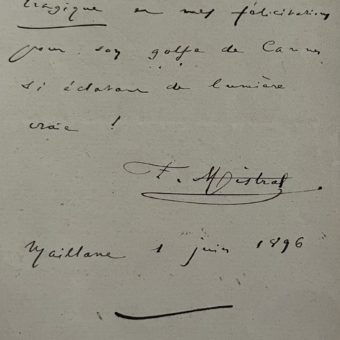 tragique et mes félicitations
pour son golfe de Cannes
si éclatant de lumière
vraie !
F. Mistral.
Maillane 1 juin 1896